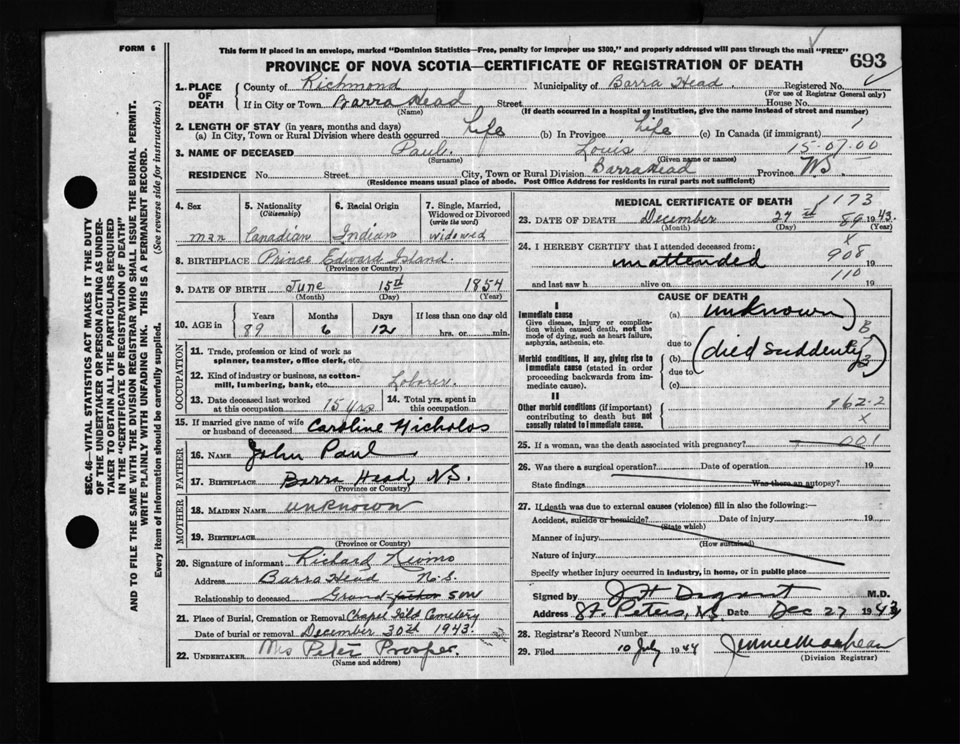 FORM 6
This form if placed in an envelope, marked "Dominion Statistics—Free, penalty for improper use $300," and properly addressed will pass through the mail "FREE"
PROVINCE OF NOVA SCOTIA—CERTIFICATE OF REGISTRATION OF DEATH
693
1. PLACE OF DEATH
County of Richmond Municipality of Barra Head. Registered No.
(For use of Registrar General only)
If in City or Town Barra Head Street House No.
(Name) (If death occurred in a hospital or institution, give the name instead of street and number)
2. LENGTH OF STAY (in years, months and days)
(a) In City, Town or Rural Division where death occurred Life (b) In Province Life (c) In Canada (if immigrant)
3. NAME OF DECEASED Paul Louis 15-07-00
(Surname) (Given name or names)
RESIDENCE No. Street City, Town or Rural Division Barra Head Province NS.
(Residence means usual place of abode. Post Office Address for residents in rural parts not sufficient)
4. Sex
man
5. Nationality
(Citizenship)
Canadian
6. Racial Origin
Indian
7. Single, Married, Widowed or Divorced
(write the word)
widowed
8. BIRTHPLACE Prince Edward Island.
(Province or Country)
9. DATE OF BIRTH June 15th 1854
(Month) (Day) (Year)
10. AGE in
Years Months Days If less than one day old
89 6 12 hrs. or min.
OCCUPATION
11. Trade, profession or kind of work as spinner, teamster, office clerk, etc.
12. Kind of industry or business, as cotton-mill, lumbering, bank, etc.
13. Date deceased last worked at this occupation 15 yrs
14. Total yrs. spent in this occupation
15. If married give name of wife or husband of deceased Caroline Nicholas
FATHER
16. NAME John Paul
17. BIRTHPLACE Barra Head, NS.
(Province or Country)
MOTHER
18. MAIDEN NAME unknown
19. BIRTHPLACE
(Province or Country)
20. Signature of informant Richard
Address Barra Head N.S.
Relationship to deceased Grand son
21. Place of Burial, Cremation or Removal Cemetery
Date of burial or removal December 30th 1943.
22. UNDERTAKER Mrs Peter Prosper.
(Name and address)
MEDICAL CERTIFICATE OF DEATH
1173
23. DATE OF DEATH December 27 89 1943.
(Month) (Day) (Year)
24. I HEREBY CERTIFY that I attended deceased from:
x
unattended 908 19
110
and last saw h alive on 19
CAUSE OF DEATH
I
Immediate cause
Give disease, injury or complication which caused death, not the mode of dying, such as heart failure, asphyxia, asthenia, etc.
(a) unknown
due to
Morbid conditions, if any, giving rise to immediate cause (stated in order proceeding backwards from immediate cause).
(b) (died suddenly)
due to
(c)
II
Other morbid conditions (if important) contributing to death but not causally related to immediate cause.
162-2
x
25. If a woman, was the death associated with pregnancy? 001
26. Was there a surgical operation? Date of operation 19
State findings Was there an autopsy?
27. If death was due to external causes (violence) fill in also the following:—
Accident, suicide or homicide? Date of injury 19
(State which)
Manner of injury
(How sustained)
Nature of injury
Specify whether injury occurred in industry, in home, or in public place
Signed by M.D.
Address St. Peters, NS Date Dec 27 1943
28. Registrar's Record Number
29. Filed 10 July 1944
(Division Registrar)
SEC. 46—VITAL STATISTICS ACT MAKES IT THE DUTY
OF THE UNDERTAKER OR PERSON ACTING AS UNDERTAKER TO OBTAIN ALL THE PARTICULARS REQUIRED
IN THE "CERTIFICATE OF REGISTRATION OF DEATH"
AND TO FILE THE SAME WITH THE DIVISION REGISTRAR WHO SHALL ISSUE THE BURIAL PERMIT.
WRITE PLAINLY WITH UNFADING INK. THIS IS A PERMANENT RECORD.
Every item of information should be carefully supplied. (See reverse side for instructions.)